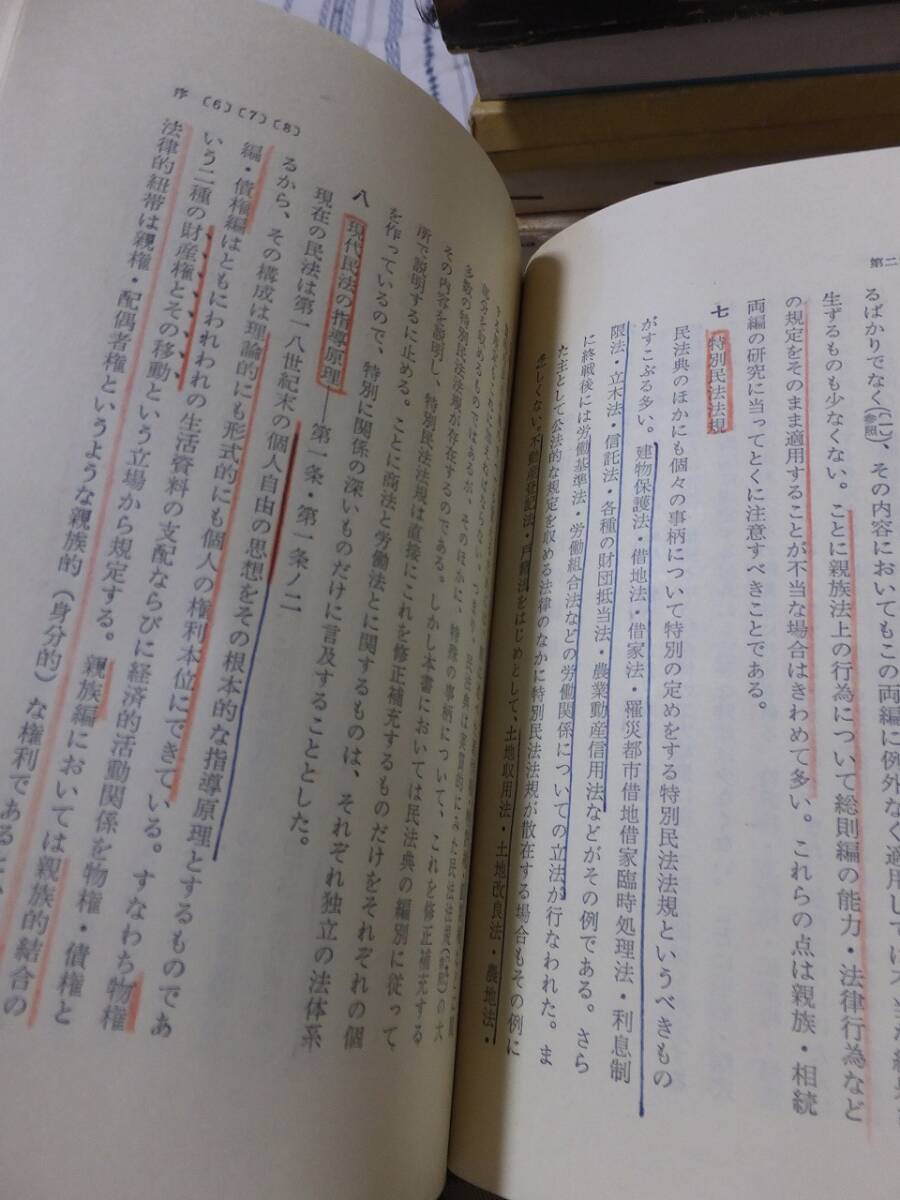 第二
るばかりでなく
参照
、その内容においてもこの両編に例外なく適用して
生ずるものも少なくない。ことに親族法上の行為について総則編の能力・法律行為など
の規定をそのまま適用することが不当な場合はきわめて多い。これらの点は親族・相続
両編の研究に当ってとくに注意すべきことである。
七 特別民法法規
民法典のほかにも個々の事柄について特別の定めをする特別民法法規というべきもの
がすこぶる多い。建物保護法・借地法・借家法・罹災都市借地借家臨時処理法・利息制
限法・立木法・信託法・各種の財団抵当法・農業動産信用法などがその例である。さら
に終戦後には労働基準法・労働組合法などの労働関係についての立法が行なわれた。ま
た主として公法的な規定を収める法律のなかに特別民法法規が散在する場合もその例に
乏しくない。不動産登記法・戸籍法をはじめとして、土地収用法・土地改良法・農地法・
多数の特別民法法規が存在するのである。しかし本書においては民法典の編別に従って
その内容を説明し、特別民法法規は直接にこれを修正補充するものだけをそれぞれの個
所で説明するに止める。ことに商法と労働法とに関するものは、それぞれ独立の法体系
を作っているので、特別に関係の深いものだけに言及することとした。
序 〔6〕〔7〕〔8〕
八 現代民法の指導原理――第一条・第一条ノ二
現在の民法は第一八世紀末の個人自由の思想をその根本的な指導原理とするものであ
るから、その構成は理論的にも形式的にも個人の権利本位にできている。すなわち物権
編・債権編はともにわれわれの生活資料の支配ならびに経済的活動関係を物権・債権と
いう二種の財産権とその移動という立場から規定する。親族編においては親族的結合の
法律的紐帯は親権・配偶者権というような親族的（身分的）な権利である